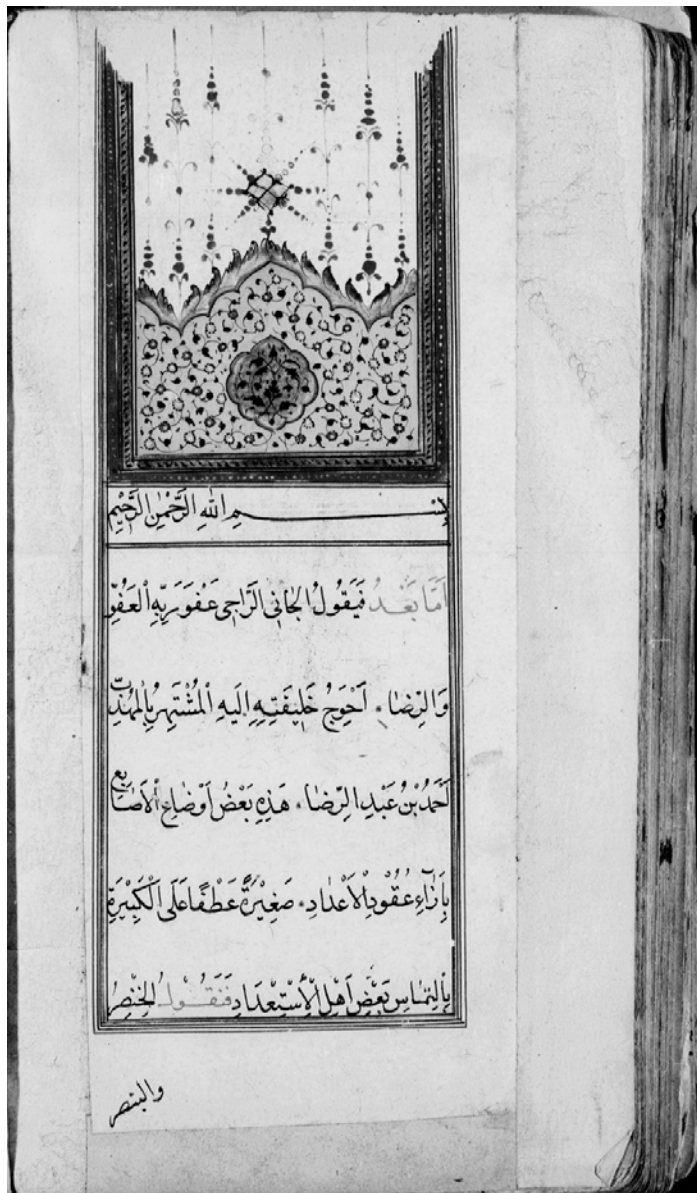 بِسْمِ اللهِ الرَّحْمٰنِ الرَّحِيْمِ
اَمَّا بَعْدُ فَيَقُولُ الْجَانِى الرَّاجِى عَفْوَ رَبِّهِ الْعَفُوِّ
وَالرِّضَا ٠ اَحْوَجُ خَلِيفَتِهِ اِلَيهِ الْمُشْتَهِرُ بِالْمُهَذَّبِ
اَحْمَدُ بْنُ عَبْدِ الرِّضَا ٠ هَذِهِ بَعْضُ اَوْضَاعِ الْاَصَابِعِ
بِاِزَاءِ عُقُودِ الْاَعْدَادِ ٠ صَغِيْرَةً عَطْفًا عَلَى الْكَبِيْرَةِ
بِالتِمَاسِ بَعْضِ اَهْلِ الْاِسْتِعْدَادِ فَنَقُوْلُ الْخِنْصِرُ
والبنصر